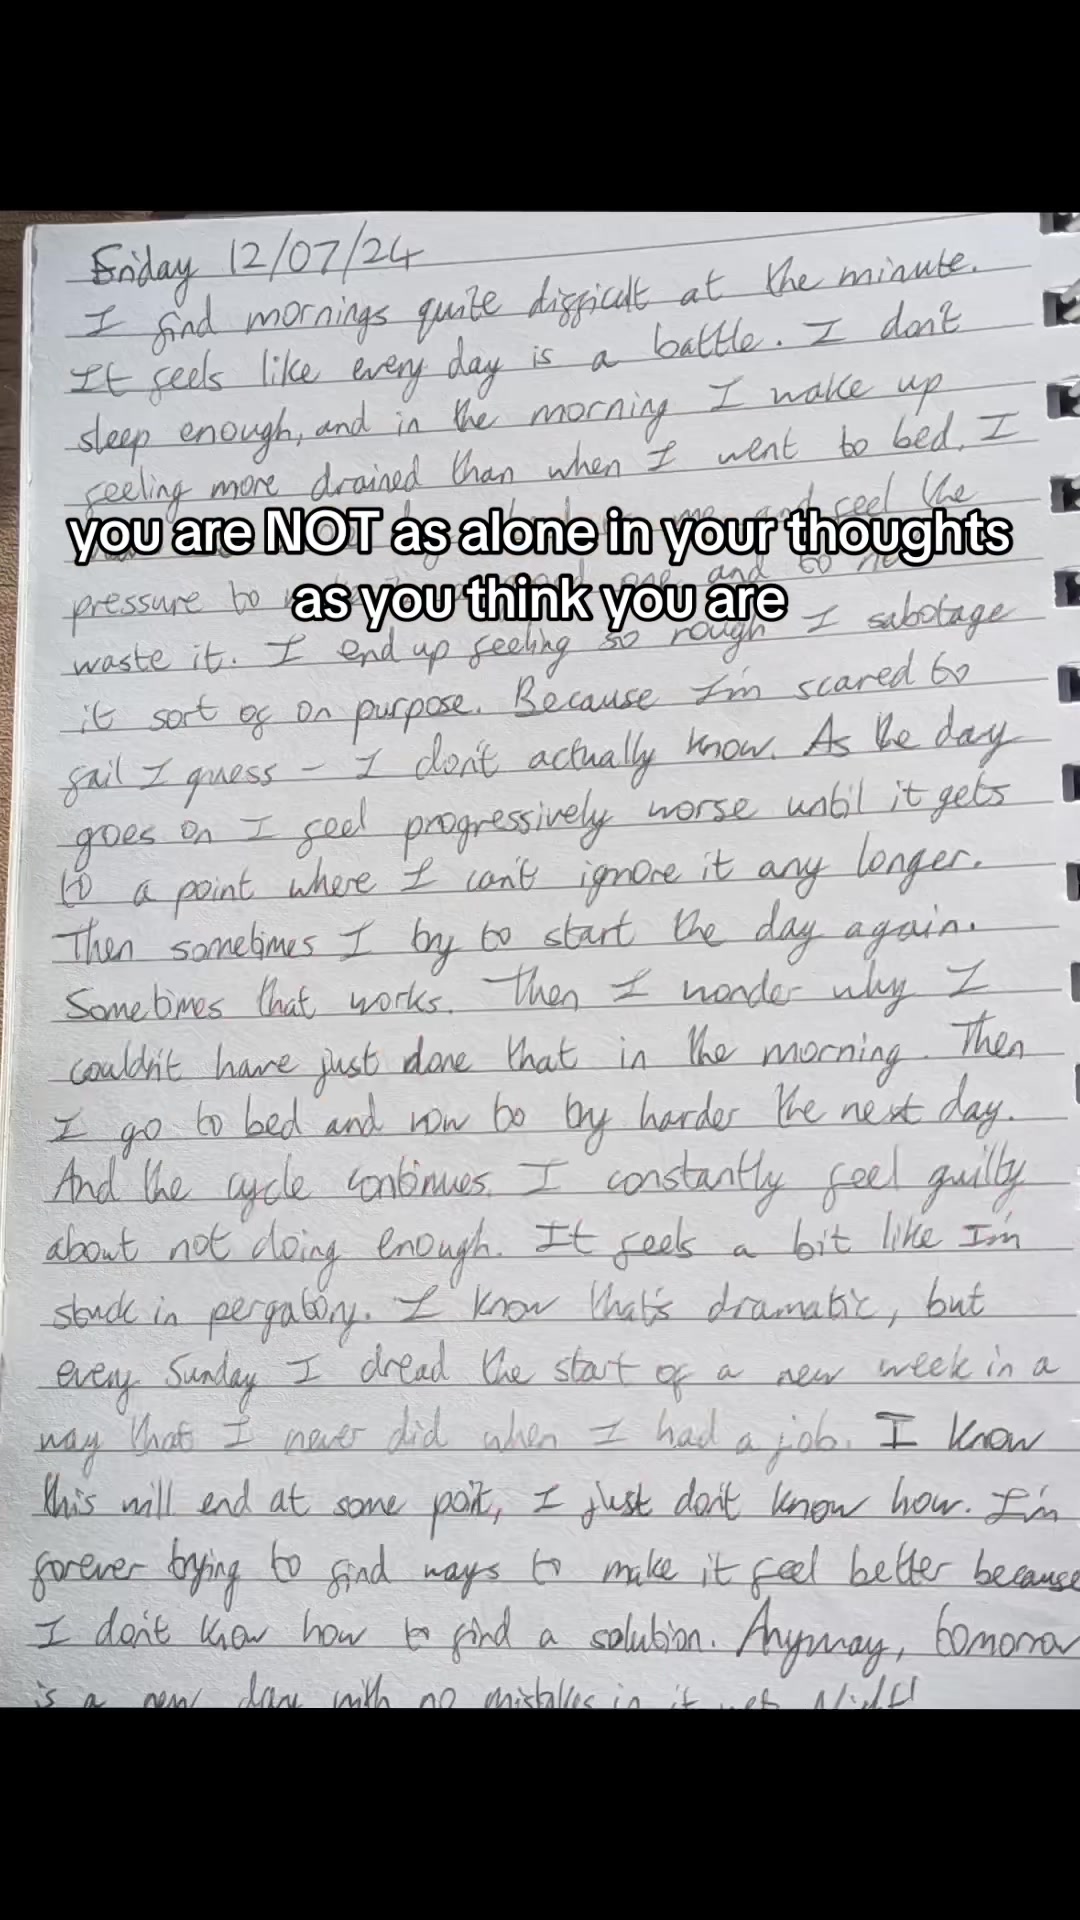 Friday 12/07/24
I find mornings quite difficult at the minute.
It feels like every day is a battle. I don't
sleep enough, and in the morning I wake up
feeling more drained than when I went to bed. I
and feel the
you are NOT as alone in your thoughts
pressure to one and to
as you think you are
waste it. I end up feeling so rough I sabotage
it sort of on purpose. Because I'm scared to
fail I guess - I don't actually know. As the day
goes on I feel progressively worse until it gets
to a point where I can't ignore it any longer.
Then sometimes I try to start the day again.
Sometimes that works. Then I wonder why I
couldn't have just done that in the morning. Then
I go to bed and vow to try harder the next day.
And the cycle continues. I constantly feel guilty
about not doing enough. It feels a bit like I'm
stuck in pergatory. I know that's dramatic, but
every Sunday I dread the start of a new week in a
way that I never did when I had a job. I know
this will end at some point, I just don't know how. I'm
forever trying to find ways to make it feel better because
I don't know how to find a solution. Anyway, tomorrow
is a new day with no mistakes in it yet. Night!